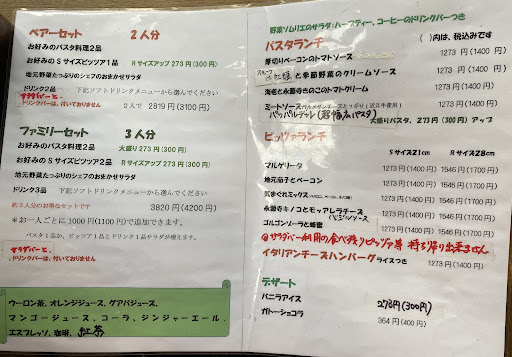 ペアーセット 2人分
お好みのパスタ料理2品
お好みの S サイズピッツア1品 R サイズアップ 273円(300円)
地元野菜たっぷりのシェフのおまかせサラダ
ドリンク2品 下記ソフトドリンクメニューから選んでください
サラダバーと、
ドリンクバーは、付いておりません 2人で 2819円(3100円)
ファミリーセット 3人分
お好みのパスタ料理2品 大盛り273円(300円)
お好みの S サイズピッツア2品 R サイズアップ 273円(300円)
地元野菜たっぷりのシェフのおまかせサラダ
ドリンク3品 下記ソフトドリンクメニューから選んでください
約3人分のお得なセットです 3820円(4200円)
*お一人ごとに1000円(1100円)で追加できます。
パスタ1品か、ピッツア1品とドリンク1品サラダが増えます。
サラダバーと、
ドリンクバーは、付いておりません
ウーロン茶、オレンジジュース、グアバジュース、
マンゴージュース、コーラ、ジンジャーエール、
エスプレッソ、珈琲、紅茶
野菜ソムリエのサラダ:ハーブティー、コーヒーのドリンクバーつき
パスタランチ ( )内は、税込みです
厚切りベーコンのトマトソース 1273円(1400円)
と季節野菜のクリームソース 1273円(1400円)
海老と永源寺きのこのトマトクリーム 1273円(1400円)
ミートソース 1273円(1400円)
パッパルデッレ(超幅広パスタ) 大盛りパスタ、273円(300円)アップ
ピッツァランチ S サイズ21cm R サイズ28cm
マルゲリータ 1273円(1400円) 1546円(1700円)
地元茄子とベーコン 1273円(1400円) 1546円(1700円)
気まぐれミックス 1273円(1400円) 1546円(1700円)
永源寺キノコとモッァレラチーズ 1273円(1400円) 1546円(1700円)
ゴルゴンゾーラと蜂蜜 1273円(1400円) 1546円(1700円)
@サラダバー利用の食べ残りピッツァ等 持ち帰り出来ません
イタリアンチーズハンバーグ ライスつき 1273円(1400円)
デザート
バニラアイス 273円(300円)
ガトーショコラ 364円(400円)